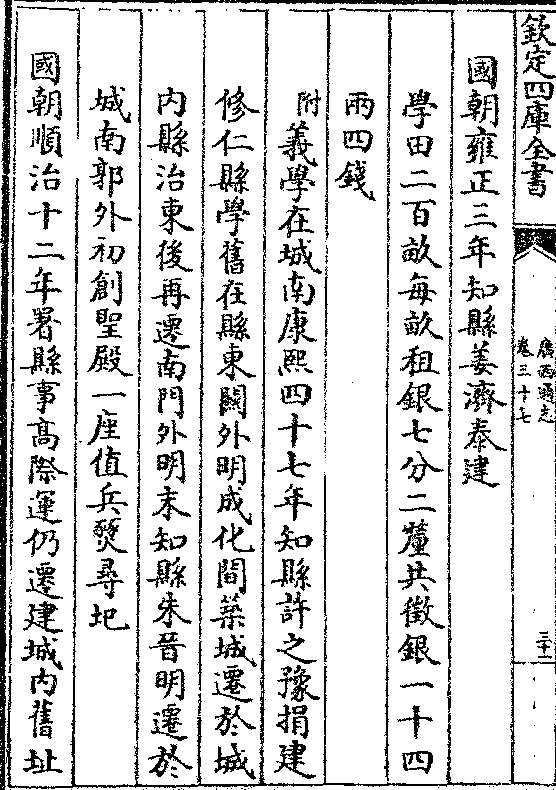 欽定四庫全書
廣西通志
卷三十七
三十一
國朝雍正三年知縣姜濟奉建
學田二百畝每畝租銀七分二釐共徵銀一十四
兩四錢
附義學在城南康熙四十七年知縣許之豫捐建
修仁縣學舊在縣東關外明成化間築城遷於城
内縣治東後再遷南門外明末知縣朱晉明遷於
城南郭外初創聖殿一座值兵燹尋圯
國朝順治十二年署縣事高際運仍遷建城内舊址